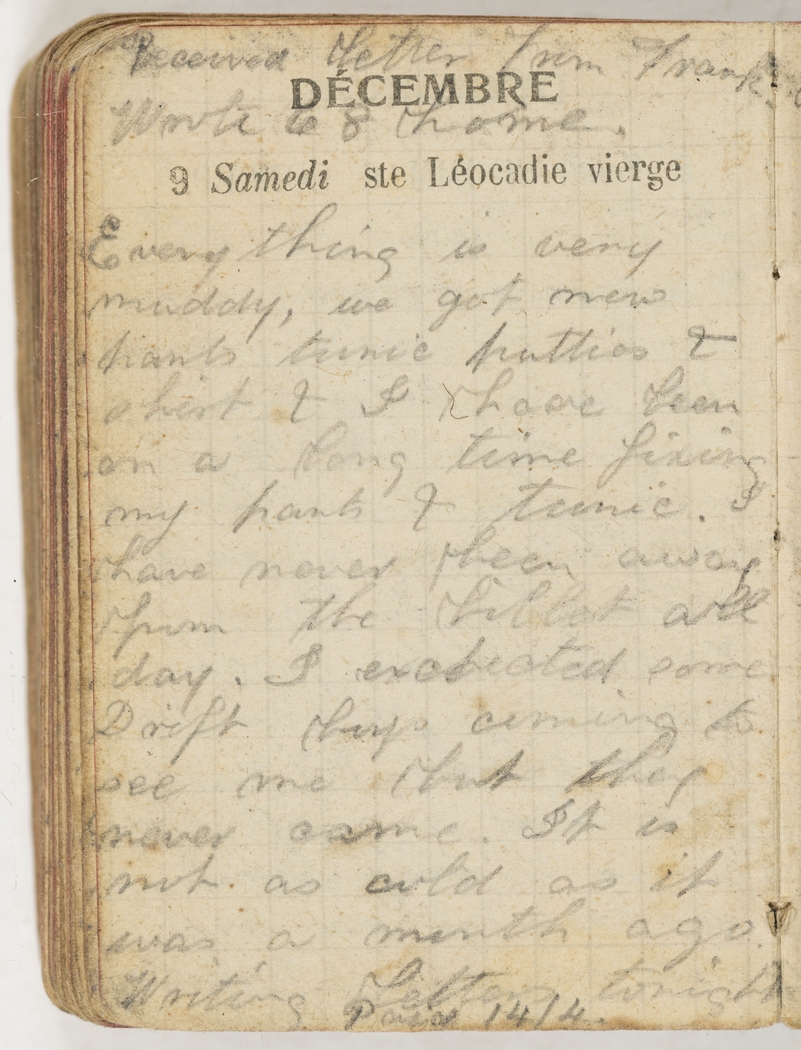 Received Letter from Frank.
DÉCEMBRE
Wrote to 8 home.
9 Samedi ste Léocadie vierge
Everything is very
muddy, we got new
pants tunic putties &
shirt & I have been
on a long time fixing
my pants & tunic. I
have never been away
from the billet all
day. I expected some
Drift boys coming to
see me but they
never came. It is
not as cold as it
was a month ago.
Writing Letters tonight
14/4.